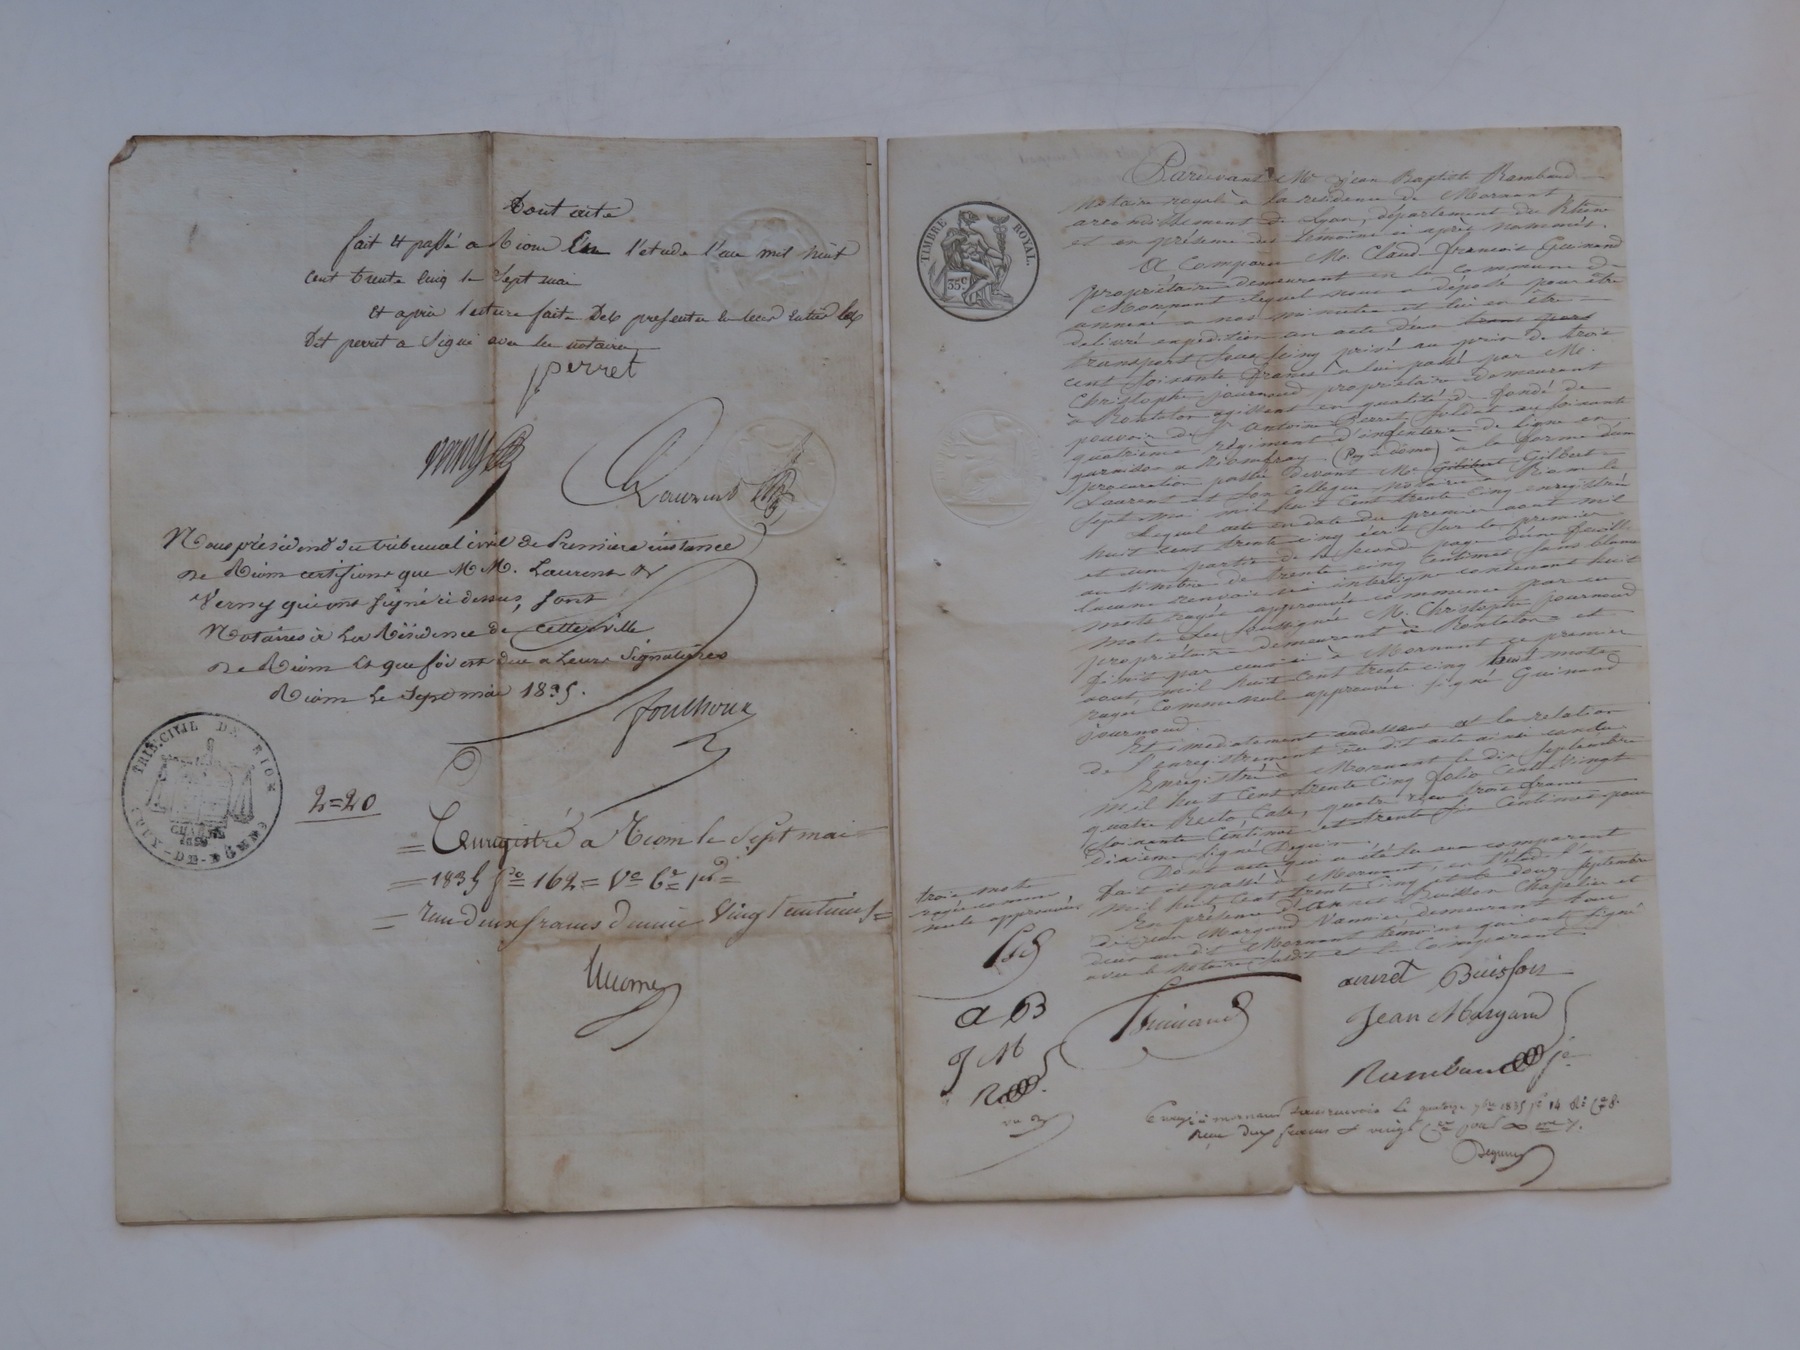 Dont acte
fait et passé a Riom En l'etude l'an mil huit
cent trente cinq le sept mai
et après lecture faite les
Dit perret a signé avec les notaires
perret
Laurent
Nous président du tribunal civil de Première instance
de Riom certifions que M M. Laurent et
Verny qui ont signé ci dessus, sont
Notaires à la Résidence de cette ville
de Riom et que foi est due a leurs signatures
Riom le sept mai 1835.
TRIB. CIVIL DE RIOM
PUY-DE-DÔME
2=20
= Enregistré a Riom le sept mai
= 1835 fo 162 = Vo
= deux francs vingt centimes =
TIMBRE ROYAL.
35 c.
Pardevant Me Jean Baptiste Rambaud
Notaire royal à la résidence de Mornant
arrondissement de Lyon, département du Rhône
et en présence des témoins ci après nommés.
A Comparu Mr. Claude francois Guinand
propriétaire demeurant en la commune de
Mornant lequel nous a déposé pour être
annexé a nos minutes et lui en être
délivré expédition un acte d'un
transport sous seing privé au prix de trois
cent soixante francs a lui passé par Mr.
Christophe journoud propriétaire demeurant
à Rontalon agissant en qualité de fondé de
pouvoir de Antoine Perret soldat au soixante
quatrième régiment d'infanterie de ligne en
garnison a (Puy de dôme) à la forme d'une
procuration passée devant Me Gilbert
Laurent et son collègue notaires a Riom le
sept mai mil huit cent trente cinq enregistrée
Lequel acte en date du premier aout mil
huit cent trente cinq écrit sur la première
et une partie de la seconde page d'une feuille
au timbre de trente cinq centimes sans blanc
lacune renvoi ni interligne contenant huit
mots rayés approuvés commence par ces
mots Le soussigné Mr. Christophe journoud
propriétaire demeurant à Rontalon et
finit par ceux-ci à Mornant ce premier
aout mil huit cent trente cinq huit mots
rayés comme nuls approuvés. signé Guinand
journoud.
Et immédiatement audessous est la relation
de l'enregistrement du dit acte ainsi conçu
Enregistré à Mornant le dix septembre
mil huit cent trente cinq folio cent vingt
quatre Recto, Case quatre reçu trois francs
soixante centimes et trente six centimes pour
dixième signé Deguin.
Dont acte
fait et passé à Mornant, en l'étude l'an
mil huit cent trente cinq et le douze septembre
En présence d'annet Buisson Chapelier et
de jean Margand Vannier demeurant tous
deux au dit Mornant témoins qui ont signé
avec le Notaire susdit et le comparant
trois mots
rayés comme
nuls approuvés
annet Buisson
A B
Guinand
Jean Margand
J M
Rambaud